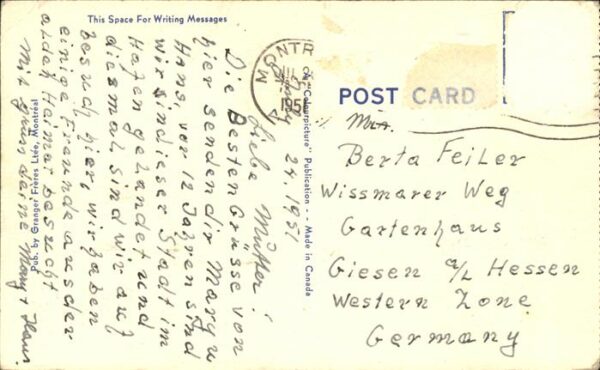 This Space For Writing Messages
May 24. 1951
Liebe Mutter!
Die Besten Grüsse von
hier senden dir Mary u
Hans, vor 12 Jahren sind
wir sind in dieser Stadt im
Hafen gelandet und
diesmal sind wir auf
besuch hier, wir haben
einige Freunde aus der
alden Heimat besucht
Mit gruss deine Mary + Hans.
Pub. by Granger Frères Ltée, Montréal
"Colourpicture" Publication - - Made in Canada
MONTR
195
POST CARD
Mrs.
Berta Feiler
Wissmarer Weg
Gartenhaus
Giesen a/L Hessen
Western Zone
Germany